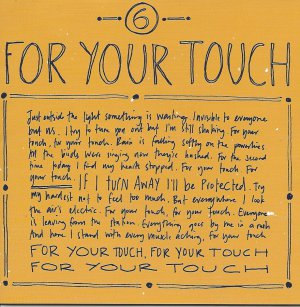 6
FOR YOUR TOUCH
Just outside the light something is waiting, Invisible to everyone
but us. I try to tune you out but I'm still shaking. For your
touch, for your touch. Rain is falling softly on the powerlines
All the birds were singing now they're hushed. For the second
time today I find my heart's stopped. For your touch. For
your touch. IF I TURN AWAY I'll be Protected. Try
my hardest not to feel too much. But everywhere I look
the air's electric. For your touch, for your touch. Everyone
is leaving from the station. Everything goes by me in a rush
And here I stand with every muscle aching, for your touch
FOR YOUR TOUCH, FOR YOUR TOUCH
FOR YOUR TOUCH